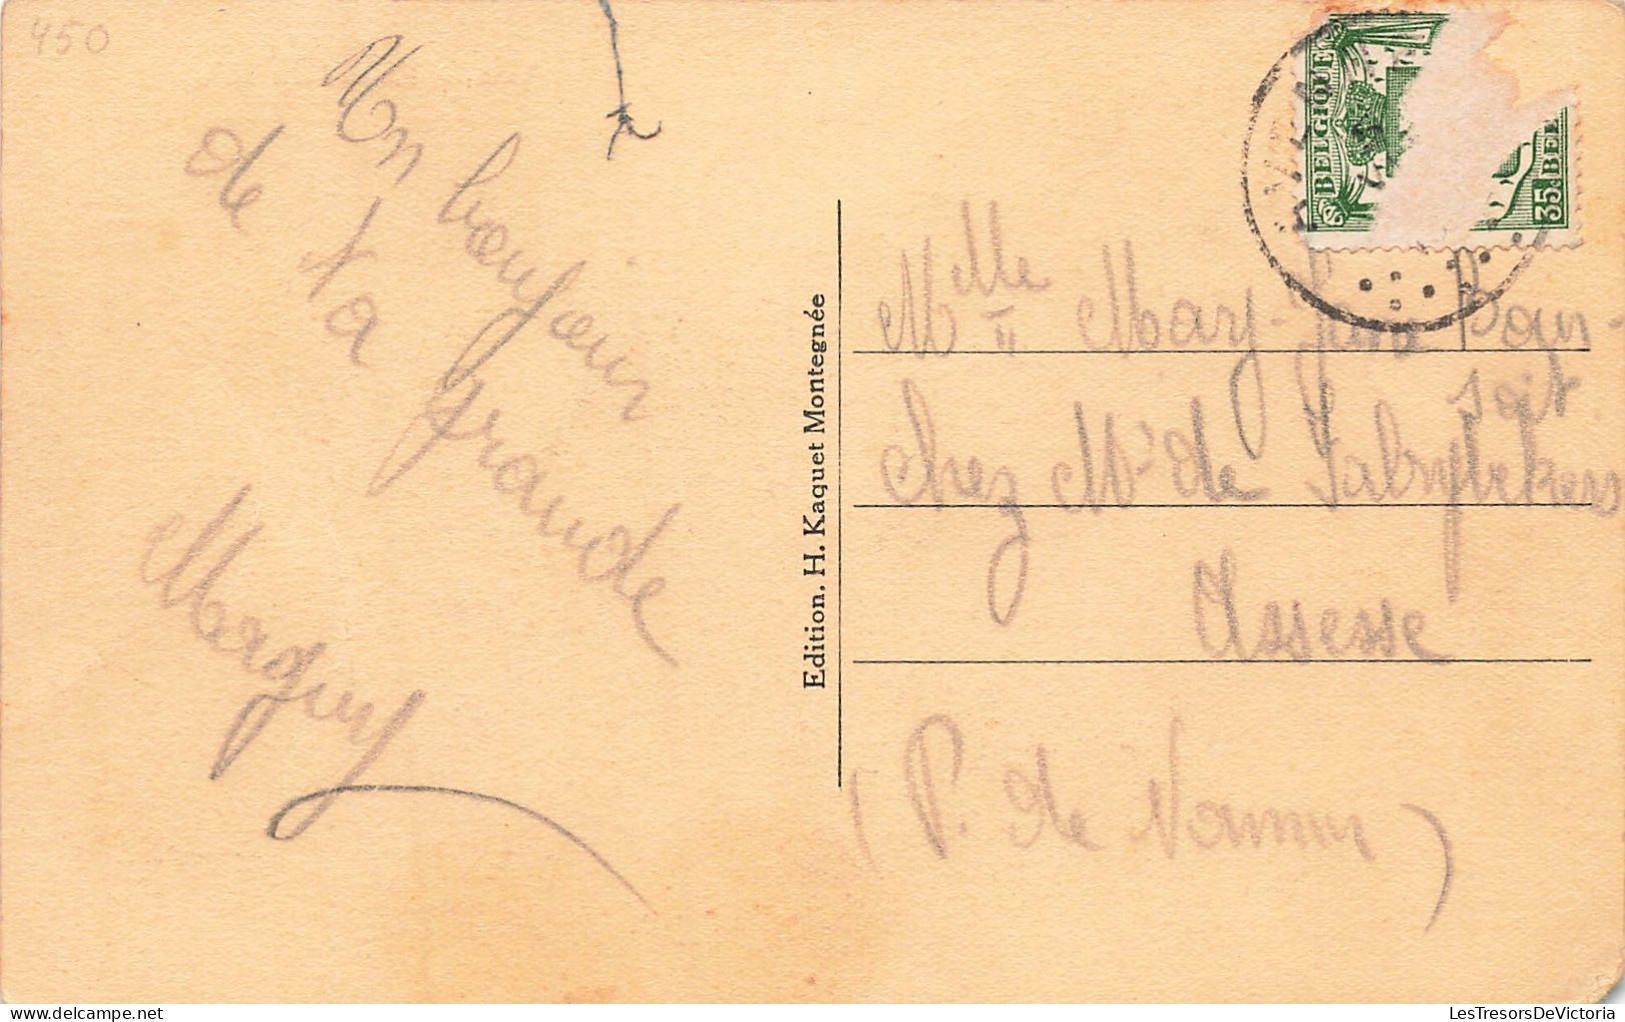 450
Un bonjour
de ta grande
Marguy
Edition. H. Kaquet Montegnée
BELGIQUE
35 BEL
Mlle Mary-Jane Bour-
soit
chez Mr de
Assesse
(P. de Namur)
LesTresorsDeVictoria